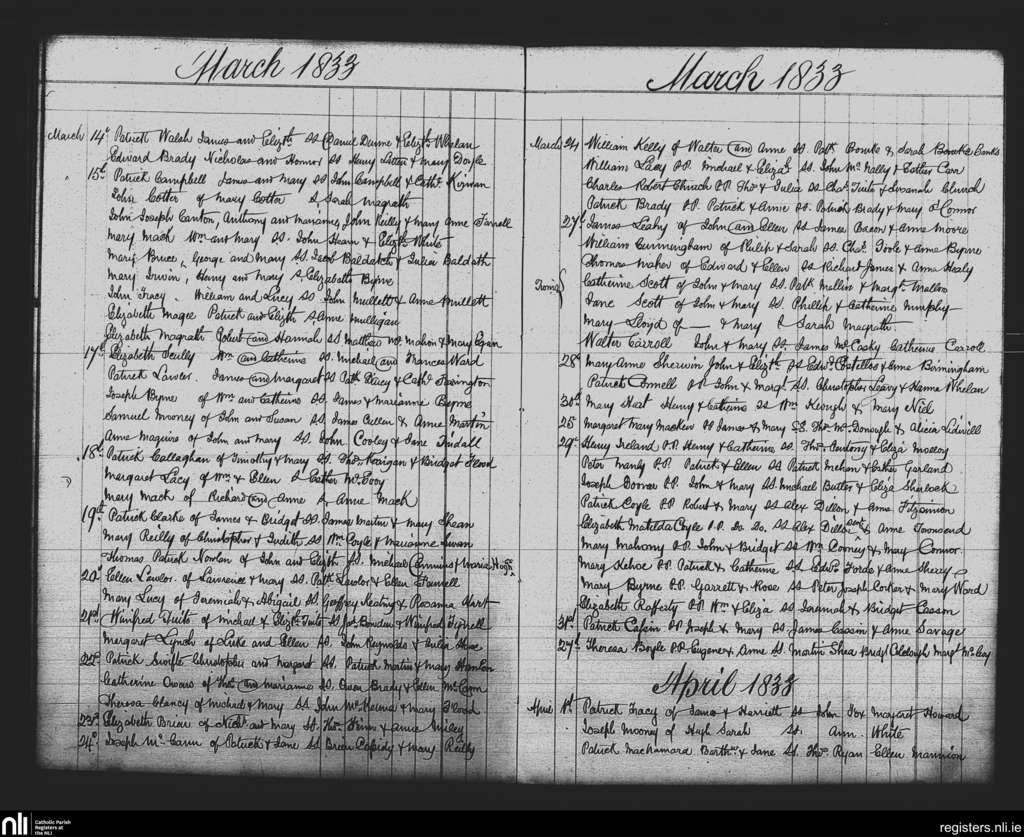 March 1833
March 14th Patrick Walsh James and Elizth SS Daniel Dunne & Elizth Whelan
Edward Brady Nicholas and Honor SS Henry & Mary Doyle
15th Patrick Campbell James and Mary SS John Campbell & Cathe Kirwan
John Cotter of Mary Cotter S Sarah Magrath
John Joseph Canton, Anthony and Marianne, John Reilly & Mary Anne Farrell
Mary Mack Wm and Mary SS. John Hearn & Elizth White
Mary Bruce, George and Mary SS. Jacob Baldath & Julia Baldath
Mary Irwin, Henry and Mary S Elizabeth Byrne
John Tracy. William and Lucy SS John Mullett & Anne Mullett
Elizabeth Magee Patrick and Elizth S Anne Mulligan
Elizabeth Magrath Robert and Hannah SS Matthew McMahon & Mary Egan
17th Elizabeth Scully Wm and Catherine SS. Michael and Frances Ward
Patrick Lawlor. James and Margaret SS Patk & Cathe
Joseph Byrne of Wm and Catherine SS James & Marianne Byrne
Samuel Mooney of John and Susan SS James Cullen & Anne Martin
Anne Maguire of John and Mary SS. John Cooley & Jane Tindall
18th Patrick Callaghan of Timothy & Mary SS. Thos. & Bridget Flood
Margaret Lacy of Wm & Ellen S Esther McEvoy
Mary Mack of Richard and Anne S Anne Mack
19th Patrick Clarke of James & Bridget SS. James Martin & Mary Shean
Mary Reilly of Christopher & Judith SS Wm Coyle & Marianne
Thomas Patrick Nowlan of John and Elizth SS. Michael Cummins & Maria
20th Ellen Lawlor. of Lawrence & Mary SS. Patk Lawlor & Ellen Farrell
Mary Lucy of Jeremiah & Abigail SS. Geoffrey Keating & Rosanna Hart
21st Winifred Tuite of Michael & Elizth Tuite SS & Winifred Tyrrell
Margaret Lynch of Luke and Ellen SS. John Reynolds & Julia Shee
22nd Patrick Swifte Christopher and Margaret SS. Patrick Martin & Mary Hanlon
Catherine Owens of Thos and Marianne SS. Owen Brady & Ellen McCann
Theresa Clancy of Michael & Mary SS John McKenna & Mary Flood
23rd Elizabeth Brien of Nichs and Mary SS. Thos. Finn & Anne
24th Joseph McCann of Patrick & Jane SS Brien Cassidy & Mary Reilly
March 1833
March 24 William Kelly of Walter and Anne SS. Patk Bourke & Sarah Bourke Banks
William Lacy P.P. Michael & Eliza SS. John McNally & Esther Carr
Charles Robert Church P.P. Thos & Julia SS Chas Tuite & Susanah Church
Patrick Brady P.P Patrick & Anne SS. Patrick Brady & Mary O'Connor
27th James Leahy of John and Ellen SS James Bacon & Anne Moore
William Cunningham of Philip & Sarah SS Chas. Toole & Anne Byrne
Thomas Maher of Edward & Ellen SS Richard James & Anne Healy
Twins Catherine Scott of John & Mary SS. Patk Mullin & Margt.
Jane Scott of John & Mary SS. Phillip & Catherine Murphy
Mary Lloyd of — & Mary S Sarah Magrath
Walter Carroll John & Mary SS. James McCasky Catherine Carroll
28 Mary Anne Sherwin John & Elizth SS Edwd & Anne Birmingham
Patrick Connell P.P. John & Margt SS. Christopher Leary & Hanna Whelan
30th Mary Heat Henry & Catherine SS Wm Keough & Mary Niel
25 Margaret Mary Macken P.P James & Mary SS. Thos. McDonough & Alicia Lidwill
29th Henry Ireland P.P. Henry & Catherine SS. Thos. Antony & Eliza Molloy
Peter Manly P.P. Patrick & Ellen SS Patrick Mehan & Esther Garland
Joseph P.P. John & Mary SS. Michael Butler & Eliza Sherlock
Patrick Coyle P.P Robert & Mary SS Alex Dillon & Anne Fitzsimon
Elizabeth Matilda Coyle P.P. Do Do. SS Alex Dillon & Anne Townsend
Mary Mahony P.P. John & Bridget SS Wm Cooney & May Connor
Mary Kehoe P.P Patrick & Catherine SS. Edwd Forde & Anne Sherry
Mary Byrne P.P. Garrett & Rose SS Peter Joseph & Mary Ward
Elizabeth Rafferty P.P. Wm & Eliza SS Jeremiah & Bridget Casson
31st Patrick P.P Joseph & Mary SS. James Cassin & Anne Savage
27th Theresa Boyle P.P. Eugene & Anne SS. Martin Shea Bridgt Margt McCoy
April 1833
April 1st Patrick Tracy of James & Harriett SS John Fox Margaret Howard
Joseph Mooney of Hugh Sarah SS. Ann. White
Patrick Machamara Barthw & Jane SS. Thos. Ryan Ellen Mannion
nli Catholic Parish Registers at the NLI
registers.nli.ie